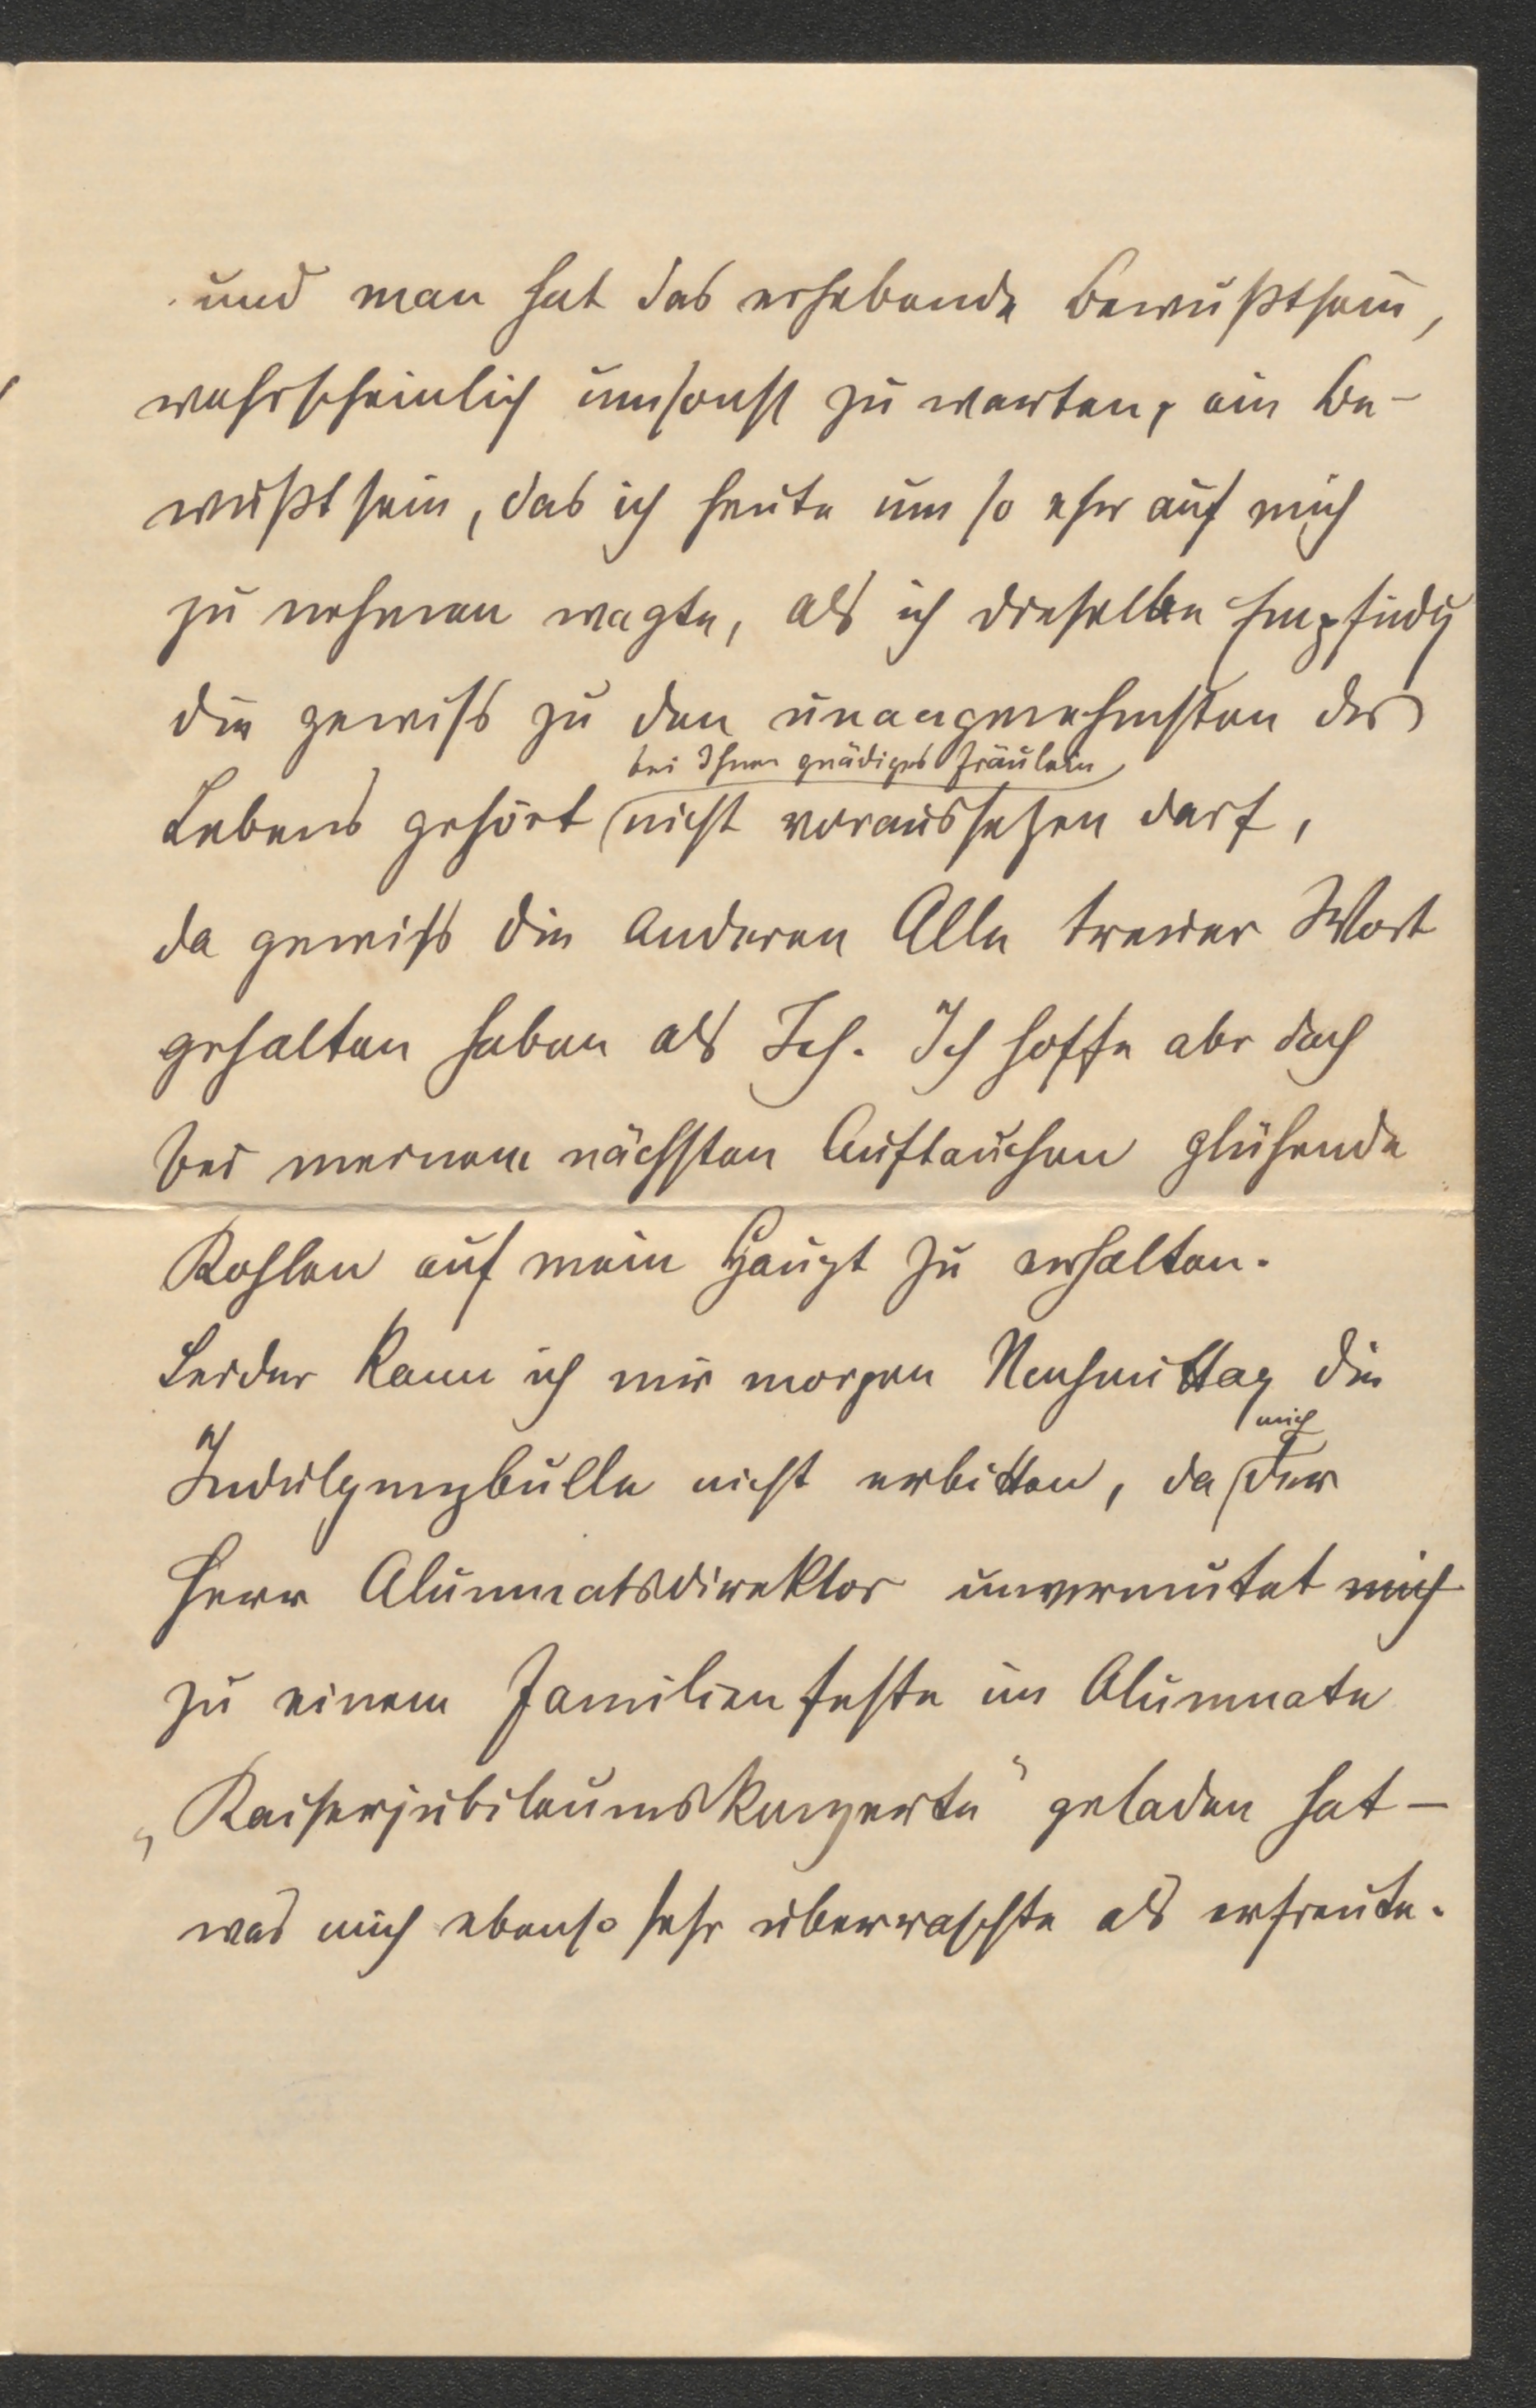 und man hat das erhebende Bewußtsein,
wahrscheinlich umsonst zu warten, ein Be-
wußtsein, das ich heute um so eher auf mich
zu nehmen wagte, als ich dieselbe Empfindg
die gewiss zu den unangenehmsten des
bei Ihnen gnädiges Fräulein
Lebens gehört nicht voraussetzen darf,
da gewiss die Anderen Alle treuer Wort
gehalten haben als Ich. Ich hoffe aber doch
bei meinem nächsten Auftauchen glühende
Kohlen auf mein Haupt zu erhalten.
Leider kann ich mir morgen Nachmittag die
mich
Indulgenzbulle nicht erbitten, da der
Herr Alumnatsdirektor unvermutet mich
zu einem Familienfeste im Alumnate
„Kaiserjubilaumskonzerte" geladen hat –
was mich ebenso sehr überraschte als erfreute.